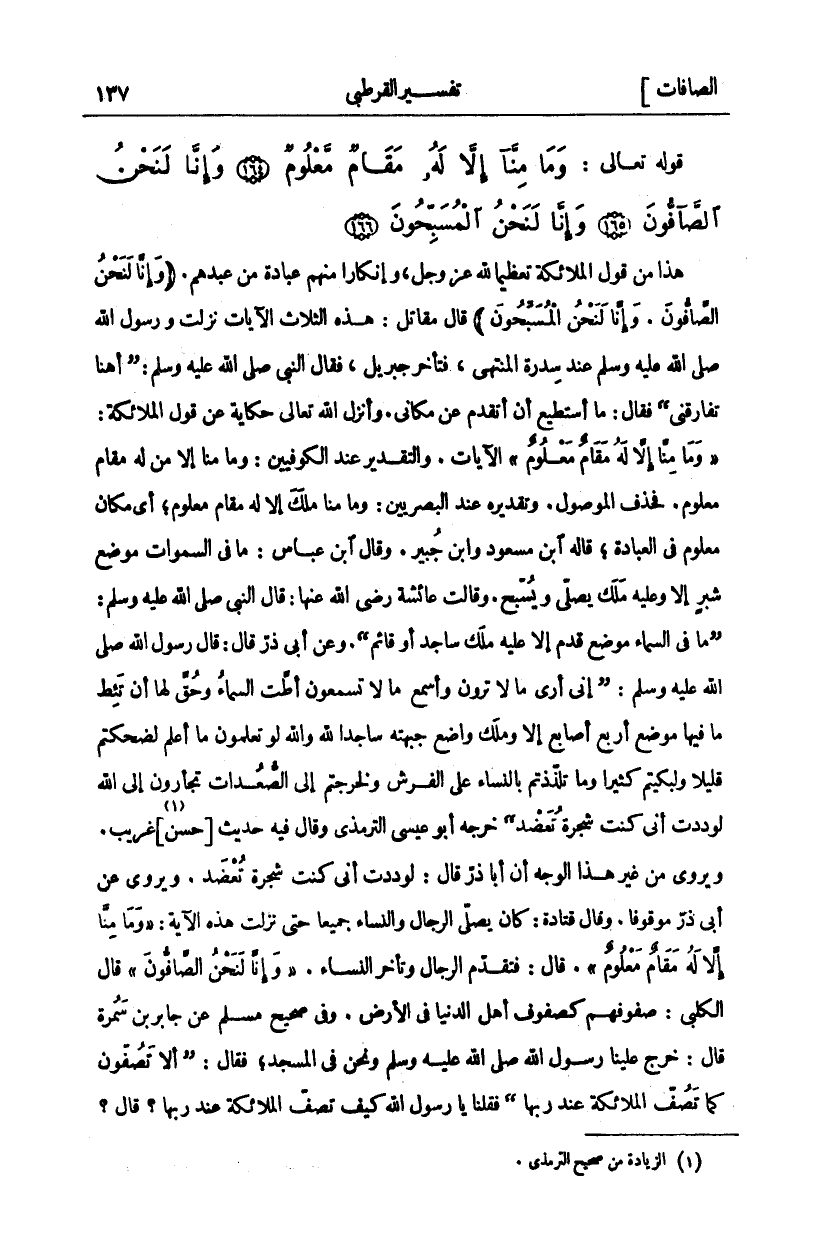 الصافات ] تفسير القرطبى ١٣٧
قوله تعالى : وَمَا مِنَّآ إِلَّا لَهُۥ مَقَامٌ مَّعْلُومٌ ١٦٤ وَإِنَّا لَنَحْنُ
ٱلصَّآفُّونَ ١٦٥ وَإِنَّا لَنَحْنُ ٱلْمُسَبِّحُونَ ١٦٦
هذا من قول الملائكة تعظيما لله عز وجل، وإنكارا منهم عبادة من عبدهم. (وَإِنَّا لَنَحْنُ
الصَّافُّونَ . وَإِنَّا لَنَحْنُ الْمُسَبِّحُونَ ) قال مقاتل : هذه الثلاث الآيات نزلت ورسول الله
صلى الله عليه وسلم عند سِدرة المنتهى ، فتأخر جبريل ، فقال النبى صلى الله عليه وسلم : ”أهنا
تفارقنى“ فقال : ما أستطيع أن أتقدم عن مكانى. وأنزل الله تعالى حكاية عن قول الملائكة :
« وَمَا مِنَّا إِلَّا لَهُ مَقَامٌ مَعْلُومٌ » الآيات . والتقدير عند الكوفيين : وما منا إلا من له مقام
معلوم. فحذف الموصول. وتقديره عند البصريين : وما منا ملَك إلا له مقام معلوم؛ أى مكان
معلوم فى العبادة ؛ قاله آبن مسعود وابن جُبير . وقال آبن عباس : ما فى السموات موضع
شبرٍ إلا وعليه مَلَك يصلّى ويُسَبِّح. وقالت عائشة رضى الله عنها : قال النبى صلى الله عليه وسلم :
”ما فى السماء موضع قدم إلا عليه ملَك ساجد أو قائم“. وعن أبى ذرّ قال : قال رسول الله صلى
الله عليه وسلم : ” إنى أرى ما لا ترون وأسمع ما لا تسمعون أطّت السماءُ وحُقَّ لها أن تَئِط
ما فيها موضع أربع أصابع إلا وملَك واضع جبهته ساجدا لله والله لو تعلمون ما أعلم لضحكتم
قليلا ولبكيتم كثيرا وما تلذّذتم بالنساء على الفرش ولخرجتم إلى الصُّعُدات تجأرون إلى الله
لوددت أنى كنت شجرة تُعَضْد“ خرجه أبو عيسى الترمذى وقال فيه حديث [حسن](١) غريب .
ويروى من غير هذا الوجه أن أبا ذرّ قال : لوددت أنى كنت شجرة تُعْضَد . ويروى عن
أبى ذرّ موقوفا . وقال قتادة : كان يصلّى الرجال والنساء جميعا حتى نزلت هذه الآية : «وَمَا مِنَّا
إِلَّا لَهُ مَقَامٌ مَعْلُومٌ » . قال : فتقدّم الرجال وتأخر النساء . « وَإِنَّا لَنَحْنُ الصَّافُّونَ » قال
الكلبى : صفوفهم كصفوف أهل الدنيا فى الأرض . وفى صحيح مسلم عن جابر بن سَمُرة
قال : خرج علينا رسول الله صلى الله عليه وسلم ونحن فى المسجد؛ فقال : ” ألا تَصُفّون
كما تَصُفّ الملائكة عند ربها “ فقلنا يا رسول الله كيف تصفّ الملائكة عند ربها ؟ قال ؟
(١) الزيادة من صحيح الترمذى .